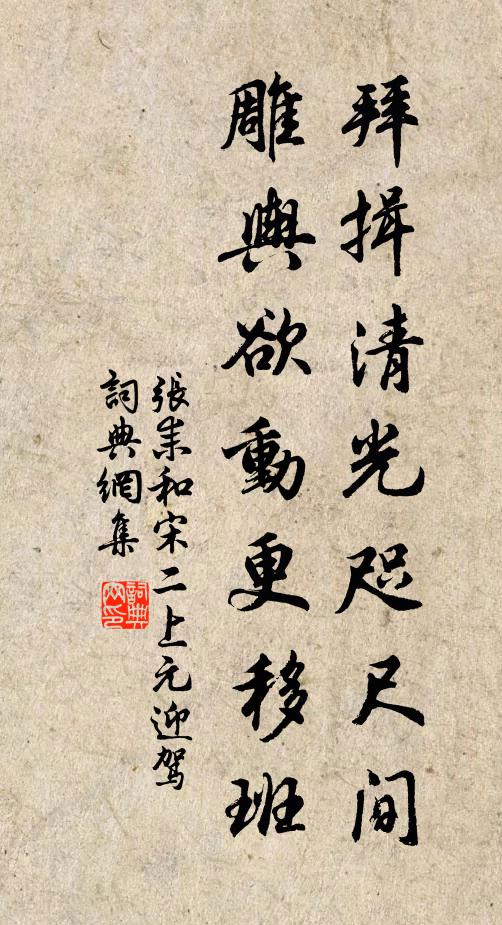 拜揖清光咫尺間
雕輿欲動更移班
張耒和宋二上元迎駕
詞典網集
詞典網印